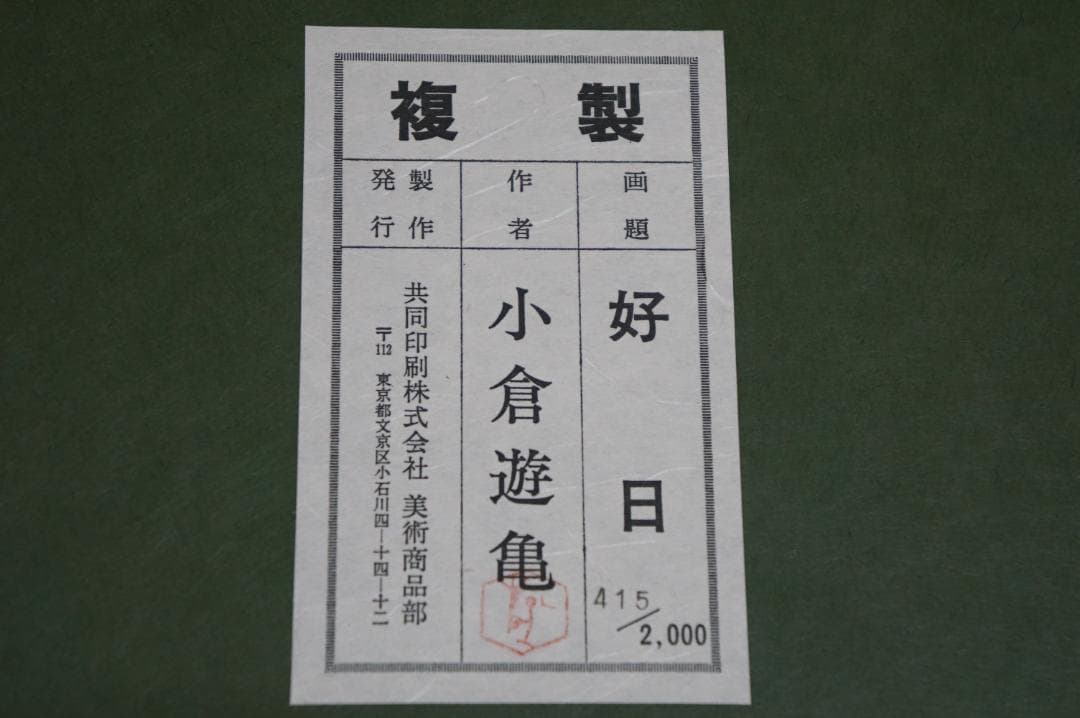 複製
画題
好日
415/2,000
作者
小倉遊亀
製作
発行
共同印刷株式会社 美術商品部
〒112 東京都文京区小石川四―十四―十二